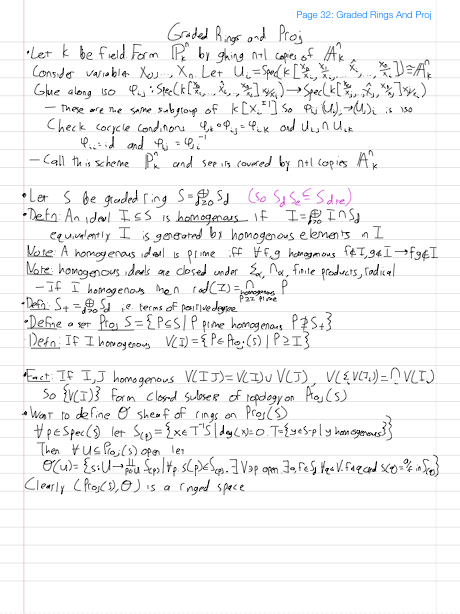 Page 32: Graded Rings And Proj
Graded Rings and Proj
• Let k be field. Form ℙⁿₖ by gluing n+1 copies of 𝔸ⁿₖ
Consider variables X₀,..., Xₙ. Let Uᵢ = Spec(k[X₀/Xᵢ, X₁/Xᵢ, ..., X̂ᵢ, ..., Xₙ/Xᵢ]) ≅ 𝔸ⁿₖ
Glue along iso φᵢⱼ: Spec(k[X₀/Xᵢ, ..., Xₙ/Xᵢ]) → Spec(k[X₀/Xⱼ, ..., Xₙ/Xⱼ])
— These are the same subgroup of k[Xᵢ^±1] so φᵢⱼ(Uᵢ)ⱼ → (Uⱼ)ᵢ is iso
Check cocycle conditions φⱼₖ∘φᵢⱼ = φᵢₖ and Uᵢⱼ ∩ Uᵢₖ
φᵢᵢ = id and φᵢⱼ = φⱼᵢ⁻¹
— Call this scheme ℙⁿₖ and see its covered by n+1 copies 𝔸ⁿₖ
• Let S be graded ring S = ⊕_{d≥0} S_d (so S_d S_e ⊆ S_{d+e})
• Defn: An ideal I ⊆ S is homogenous if I = ⊕_{d≥0} I∩S_d
equivalently I is generated by homogenous elements in I
Note: A homogenous ideal is prime iff ∀f,g homogenous f∉I, g∉I → fg∉I
Note: homogenous ideals are closed under Σ_α, ∩_α, finite products, radical
— If I homogenous then rad(I) = ∩_{P⊇I homogenous prime} P
• Defn: S₊ = ⊕_{d>0} S_d i.e. terms of positive degree
• Define a set Proj S = {P⊆S | P prime homogenous P⊉S₊}
• Defn: If I homogenous V(I) = {P∈Proj(S) | P⊇I}
• Fact: If I, J homogenous V(IJ) = V(I)∪V(J), V(ΣV(Iᵢ)) = ∩V(Iᵢ)
So {V(I)} form closed subsets of topology on Proj(S)
• Want to define 𝒪 sheaf of rings on Proj(S)
∀p∈Spec(S) let S₍ₚ₎ = {x∈T⁻¹S | deg(x)=0. T={y∈S-p | y homogenous}}
Then ∀U⊆Proj(S) open let
𝒪(U) = {s:U→∐_{p∈U} S₍ₚ₎ | ∀p s(p)∈S₍ₚ₎. ∃V∋p open ∃a,f∈S_d ∀q∈V. f∉q and s(q)=a/f in S₍q₎}
Clearly (Proj(S), 𝒪) is a ringed space